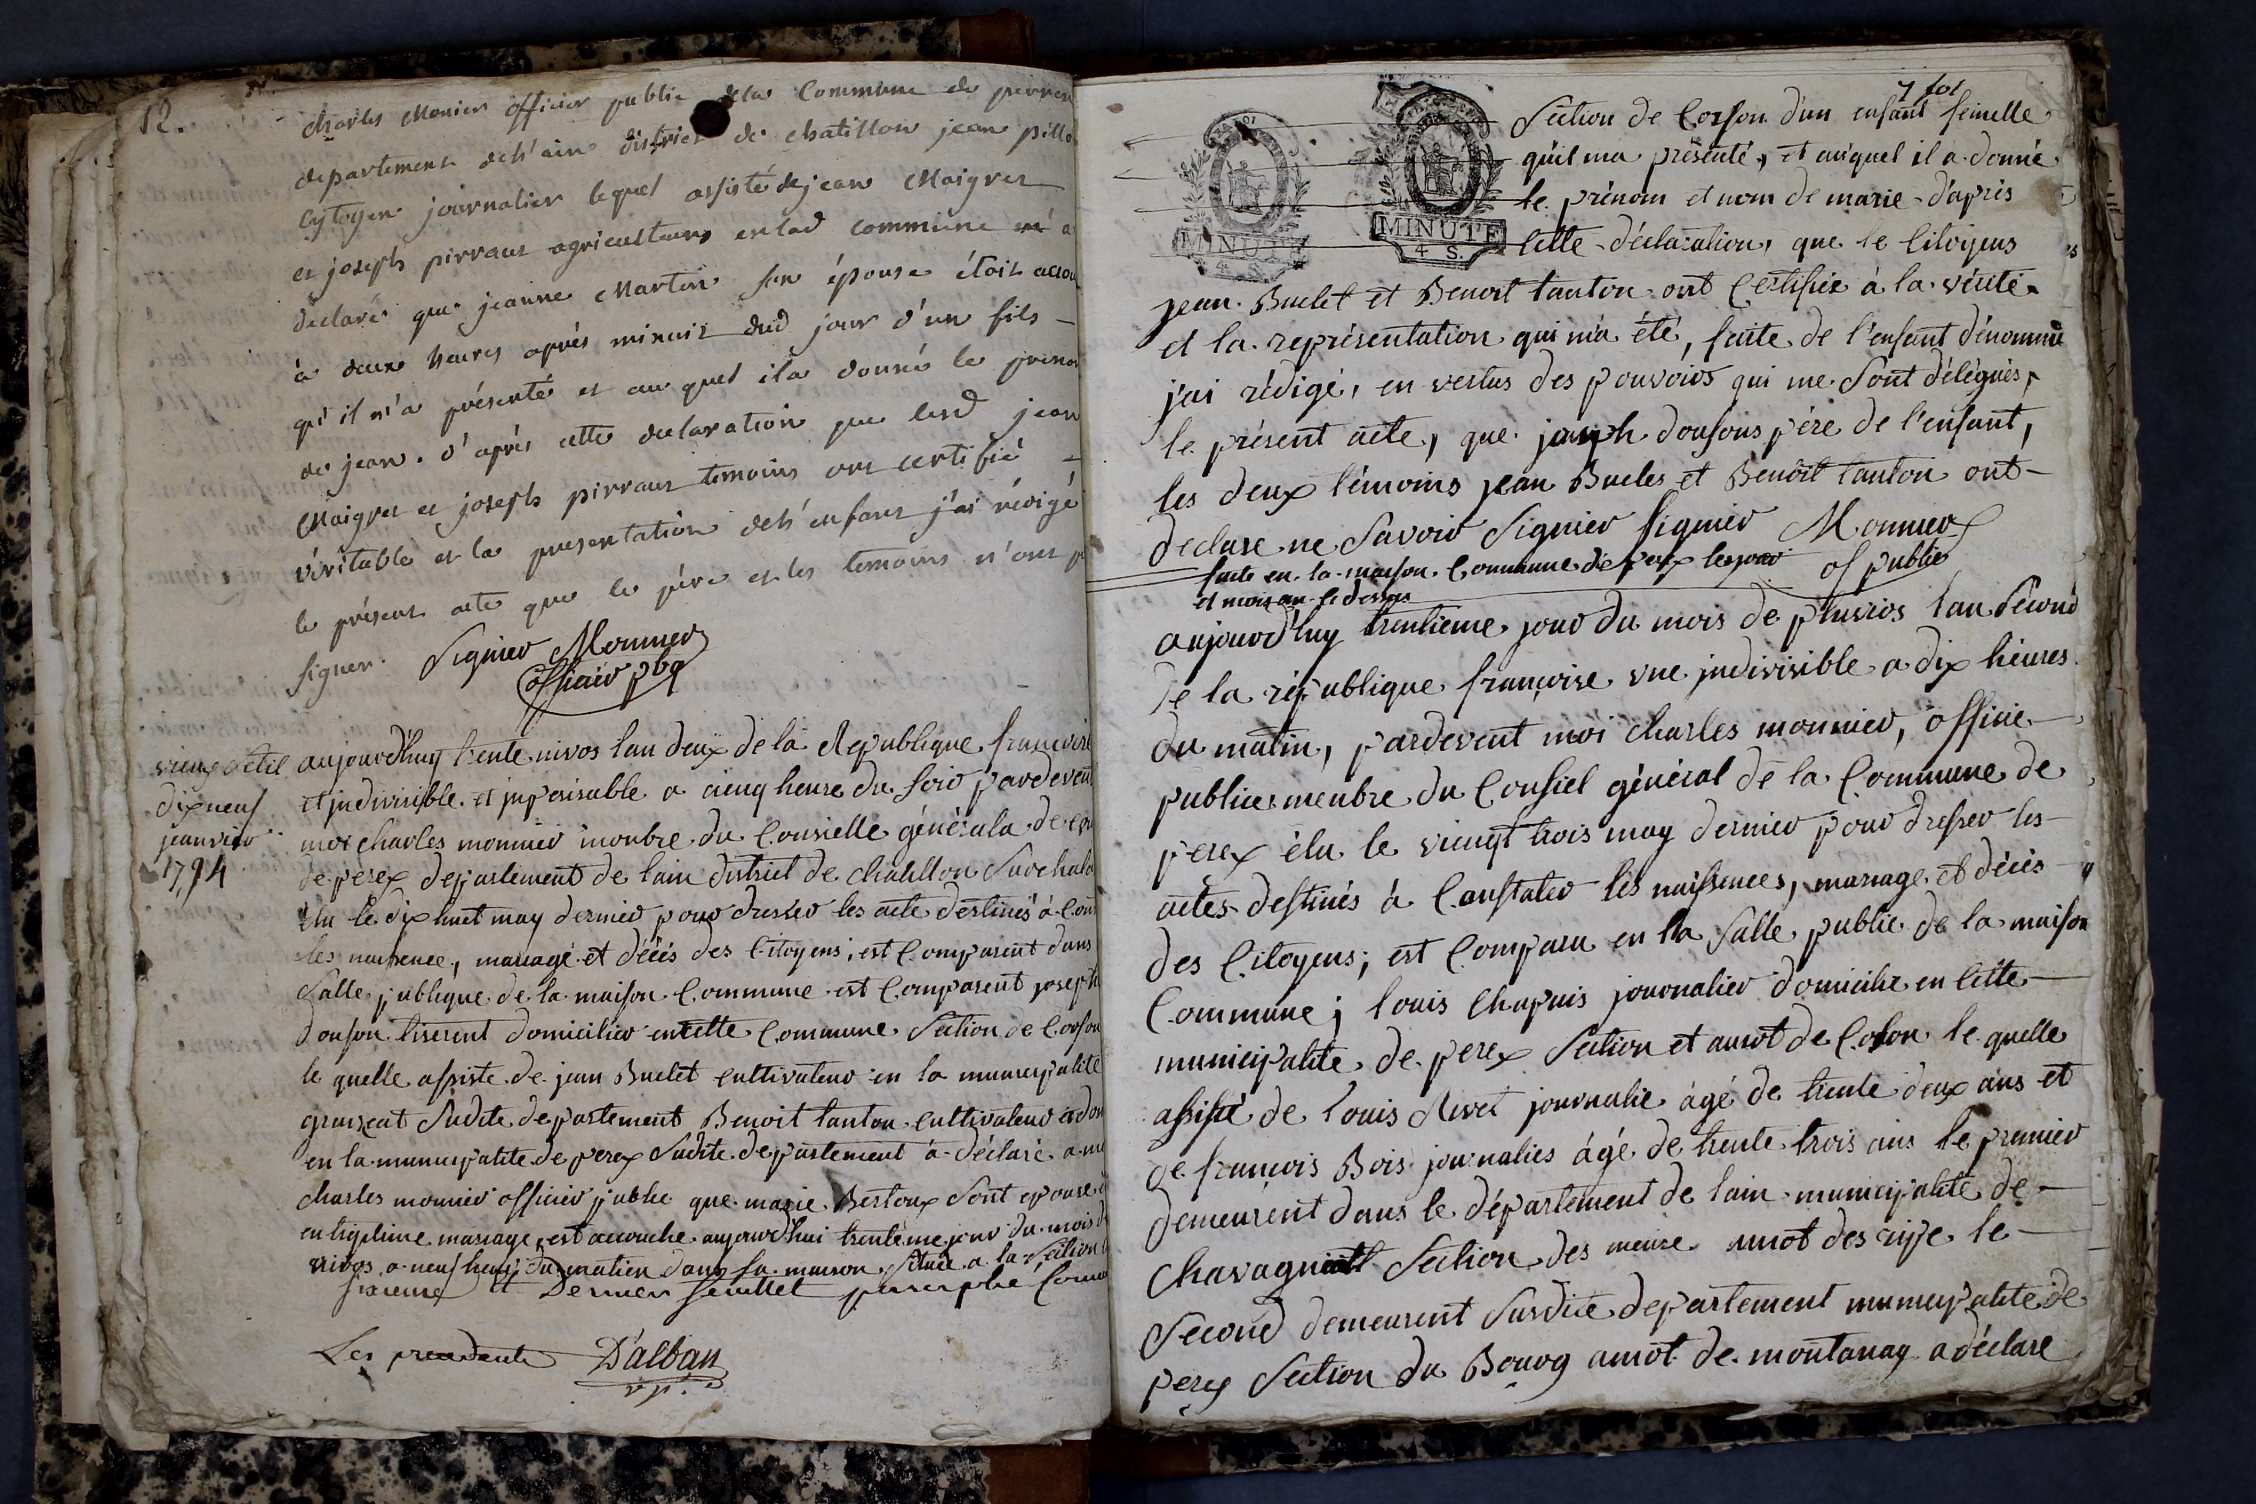 12.
charles Monier officier public dela Commune de perrex
departement deh'ain district de chatillon jean pillo
Cytoyen journalier lequel assisté de jean Maigret
et joseph pirraut agriculteurs enlad commune m'a
declaré que jeanne Martin son épouse étoit accou
à deux heures après minuit dud jour d'un fils
qu'il m'a présenté et au quel ila donné le prenom
de jean. d'après cette declaration que lesd jean
Maigret et joseph pirraut temoins ont certifié
véritable et la presentation deh'enfant j'ai rédigé
le présent acte que le père et les temoins n'ont p
signer. Signier Monnier
officier pbq
vieux stil
dix neuf
jeanvier
1794
aujourd'huy trente nivos lan deux de la Republique françoise
et jndivisible et jnperisable a cienq heure du soir pardevent
moi charles monnier monbre du Consielle générala de
de perex departement de lain district de chatillon sur chala
élu le dix huet may dernier pour dresser les acte destinés à Con
les naisence, mariage et décés des Citoyens, est Comparent dans
salle publique de la maison Commune est Comparent joseph
donson tiserent domicilier encette Commune Section de Corson
le quelle assiste de jean Buclet cultivateur en la municipalite
graizeat sudite departement Benoit tanton cultivateur et dom
en la municipalite de perex sudite departement à déclaré a moi
charles monnier officier public que marie Bertoux sont epouse
en ligetime mariage, est accouche aujourd'hui trentieme jour du mois d
nivos a neuf heure du matien dans sa maison située a la Section
sixieme et Dernier feuillet paraphé Comme
Les precedents D'alban
v. p.
7 fol
MINUTE
4 S.
MINUTE
4 S.
Section de Corson d'un enfant femelle
qu'il ma présenté, et auquel il a donné
le prénom et nom de marie d'après
cette déclaration, que le Citoyens
jean Buclet et Benoit tanton ont Certifiée à la vérité
et la représentation qui m'a été, faite de l'enfant dénommé
j'ai rédigé, en vertus des pouvoirs qui me sont délégués,
le présent acte, que joseph donsons père de l'enfant,
les deux témoins jean Bucles et Benoit tanton ont
declare ne Savoir Signier signier Monnier
of public
faite en la maison Commune de perex les jour
et mois an ci dessus
aujourd'huy trentieme jour du mois de pluvios lan Second
de la république françoise une jndivisible a dix heures
du matin, pardevent moi charles monnier, officie
publice menbre du Consiel général de la Commune de
perex élu le viengt trois may dernier pour dresser les
actes destinés à Constater les naissences, mariage et décés
des Citoyens; est Comparu en la salle public de la maison
Commune; louis Chapuis journalier domicilie en Cette
municipalite de perex Section et amot de Coson le quelle
assisté de louis Rivet journalie âgé de trente deux ans et
de francois Bois journalies âgé de trente trois ans le premier
demeurent dans le département de lain municipalité de
Chavagniatt Section des meure amot des le
Second demeurent Susdite departement municipalite de
perex Section du Bourg amot de montanay a déclare